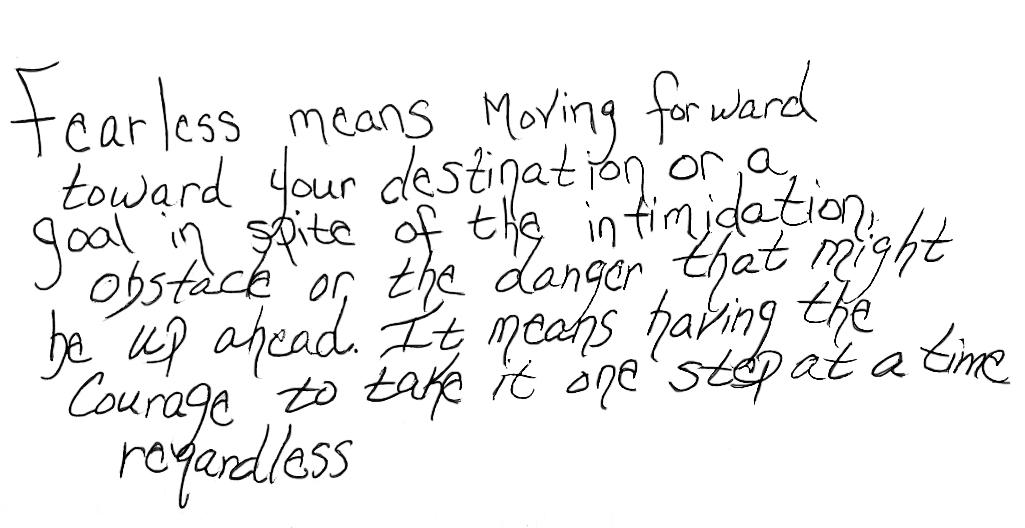 Fearless means Moving forward
toward your destination or a
goal in spite of the intimidation,
obstacle or the danger that might
be up ahead. It means having the
Courage to take it one step at a time
regardless